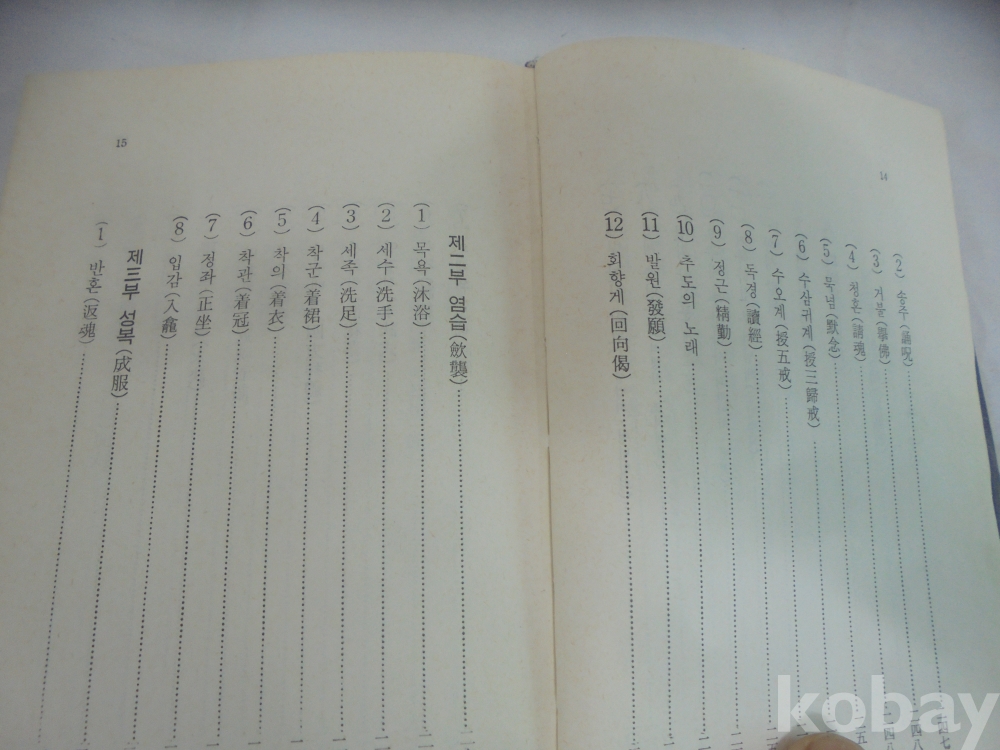 14
(2) 송주(誦呪)
(3) 거불(擧佛)
(4) 청혼(請魂)
(5) 묵념(默念)
(6) 수삼귀계(授三歸戒)
(7) 수오계(授五戒)
(8) 독경(讀經)
(9) 정근(精勤)
(10) 추도의 노래
(11) 발원(發願)
(12) 회향게(回向偈)
15
제二부 염습(斂襲)
(1) 목욕(沐浴)
(2) 세수(洗手)
(3) 세족(洗足)
(4) 착군(着裙)
(5) 착의(着衣)
(6) 착관(着冠)
(7) 정좌(正坐)
(8) 입감(入龕)
제三부 성복(成服)
(1) 반혼(返魂)
kobay